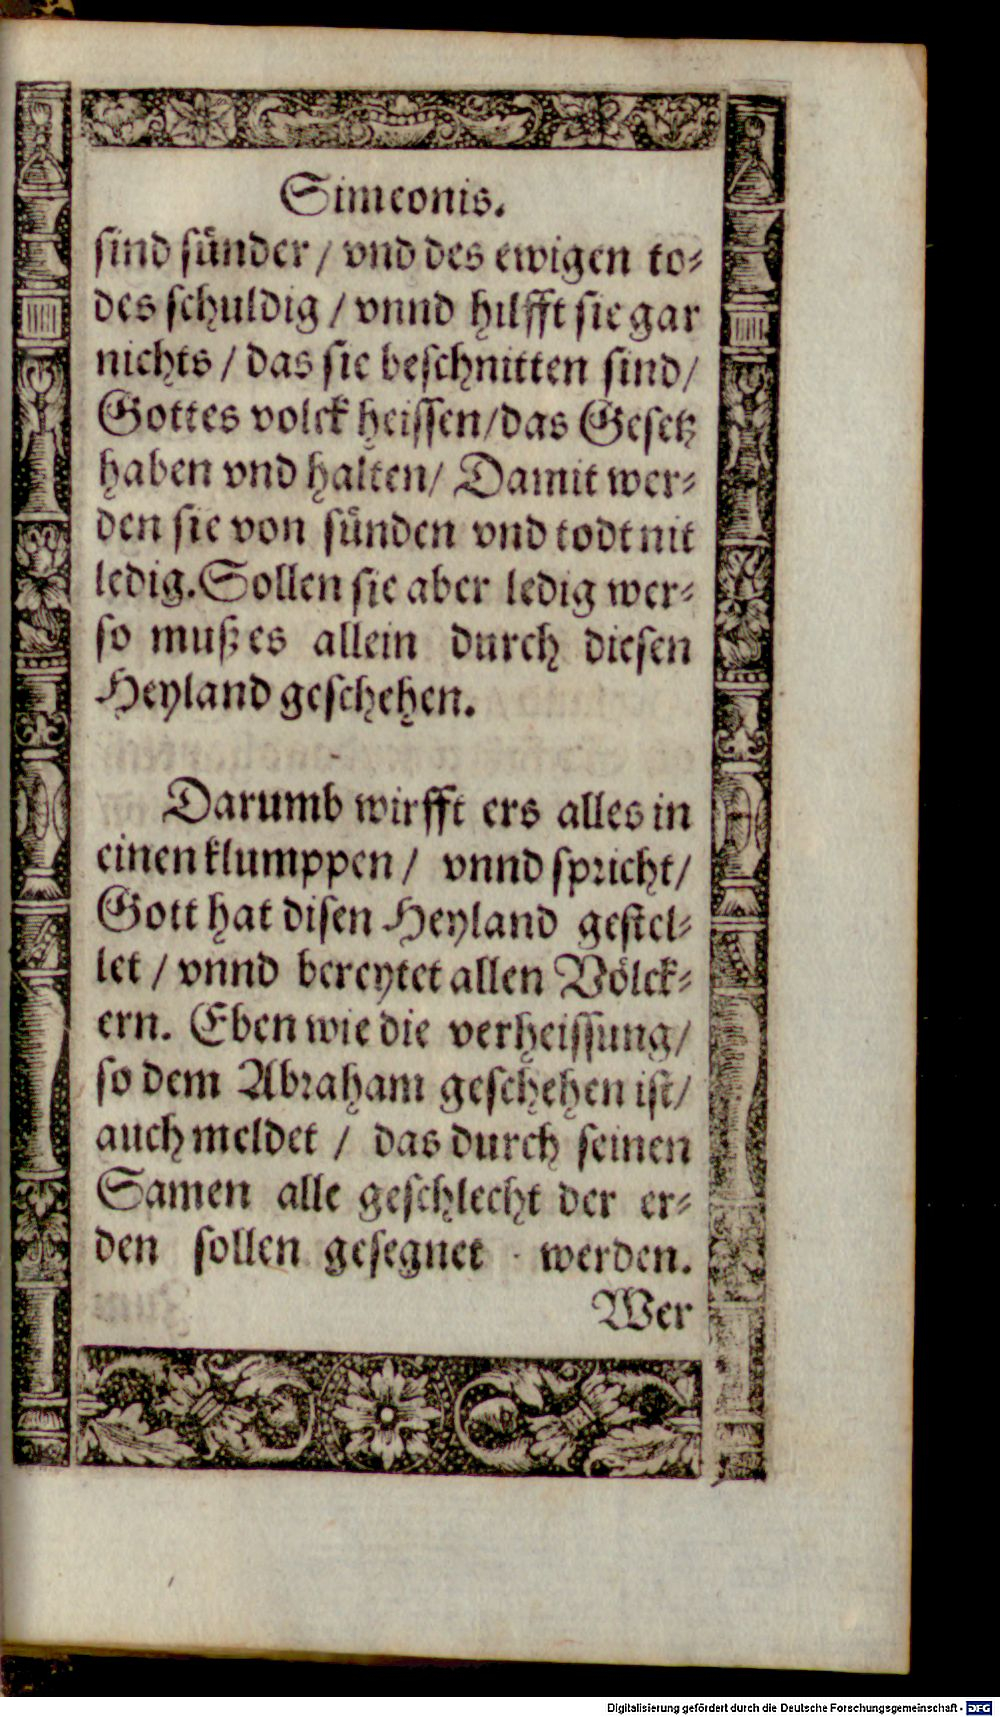 Simeonis.
sind sünder / vnd des ewigen to-
des schuldig / vnnd hilfft sie gar
nichts / das sie beschnitten sind /
Gottes volck heissen / das Gesetz
haben vnd halten / Damit wer-
den sie von sünden vnd todt nit
ledig. Sollen sie aber ledig wer-
so muß es allein durch diesen
Heyland geschehen.
Darumb wirfft ers alles in
einen klumppen / vnnd spricht /
Gott hat disen Heyland gestel-
let / vnnd bereytet allen Völck-
ern. Eben wie die verheissung /
so dem Abraham geschehen ist /
auch meldet / das durch seinen
Samen alle geschlecht der er-
den sollen gesegnet werden.
Wer
Digitalisierung gefördert durch die Deutsche Forschungsgemeinschaft - DFG